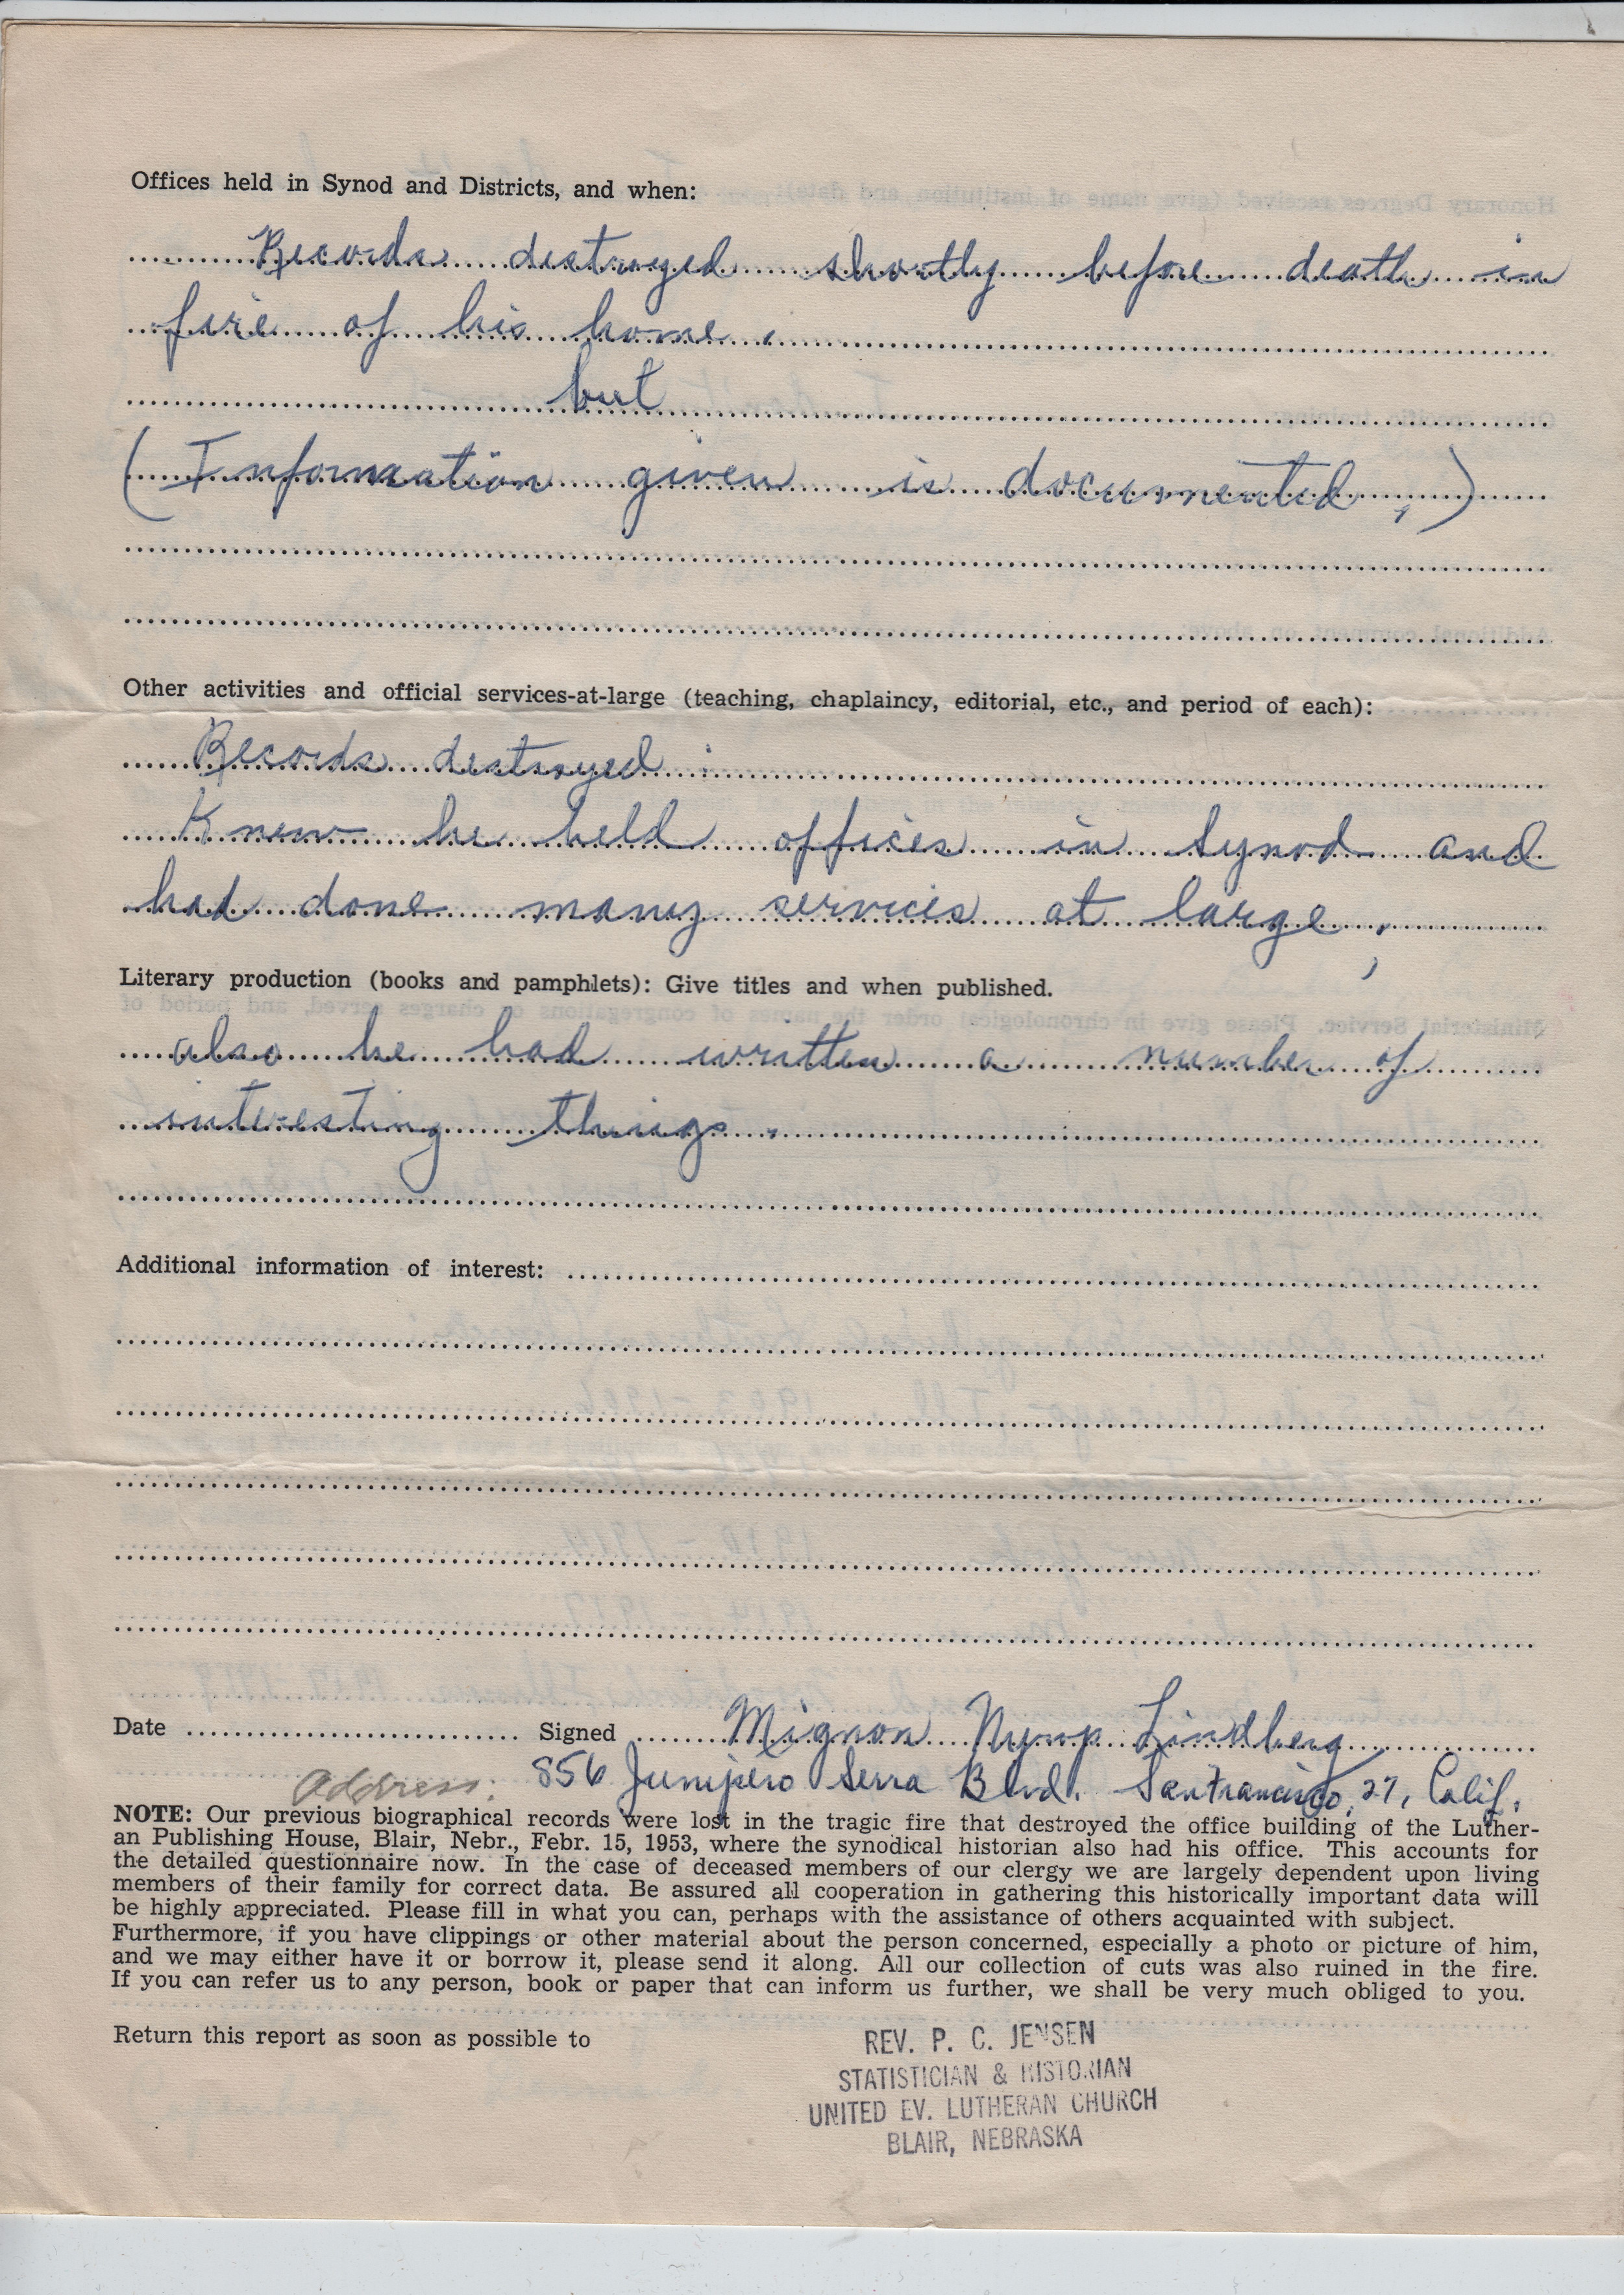 Offices held in Synod and Districts, and when:
Records destroyed shortly before death in
fire of his home.
but
(Information given is documented,)
Other activities and official services-at-large (teaching, chaplaincy, editorial, etc., and period of each):
Records destroyed:
Know he held offices in Synod and
had done many services at large,
Literary production (books and pamphlets): Give titles and when published.
also he had written a number of
interesting things.
Additional information of interest:
Date Signed Mignon Nymp Lindberg
Address: 856 Junipero Serra Blvd. San Francisco, 27, Calif.
NOTE: Our previous biographical records were lost in the tragic fire that destroyed the office building of the Luther-
an Publishing House, Blair, Nebr., Febr. 15, 1953, where the synodical historian also had his office. This accounts for
the detailed questionnaire now. In the case of deceased members of our clergy we are largely dependent upon living
members of their family for correct data. Be assured all cooperation in gathering this historically important data will
be highly appreciated. Please fill in what you can, perhaps with the assistance of others acquainted with subject.
Furthermore, if you have clippings or other material about the person concerned, especially a photo or picture of him,
and we may either have it or borrow it, please send it along. All our collection of cuts was also ruined in the fire.
If you can refer us to any person, book or paper that can inform us further, we shall be very much obliged to you.
Return this report as soon as possible to
REV. P. C. JENSEN
STATISTICIAN & HISTORIAN
UNITED EV. LUTHERAN CHURCH
BLAIR, NEBRASKA